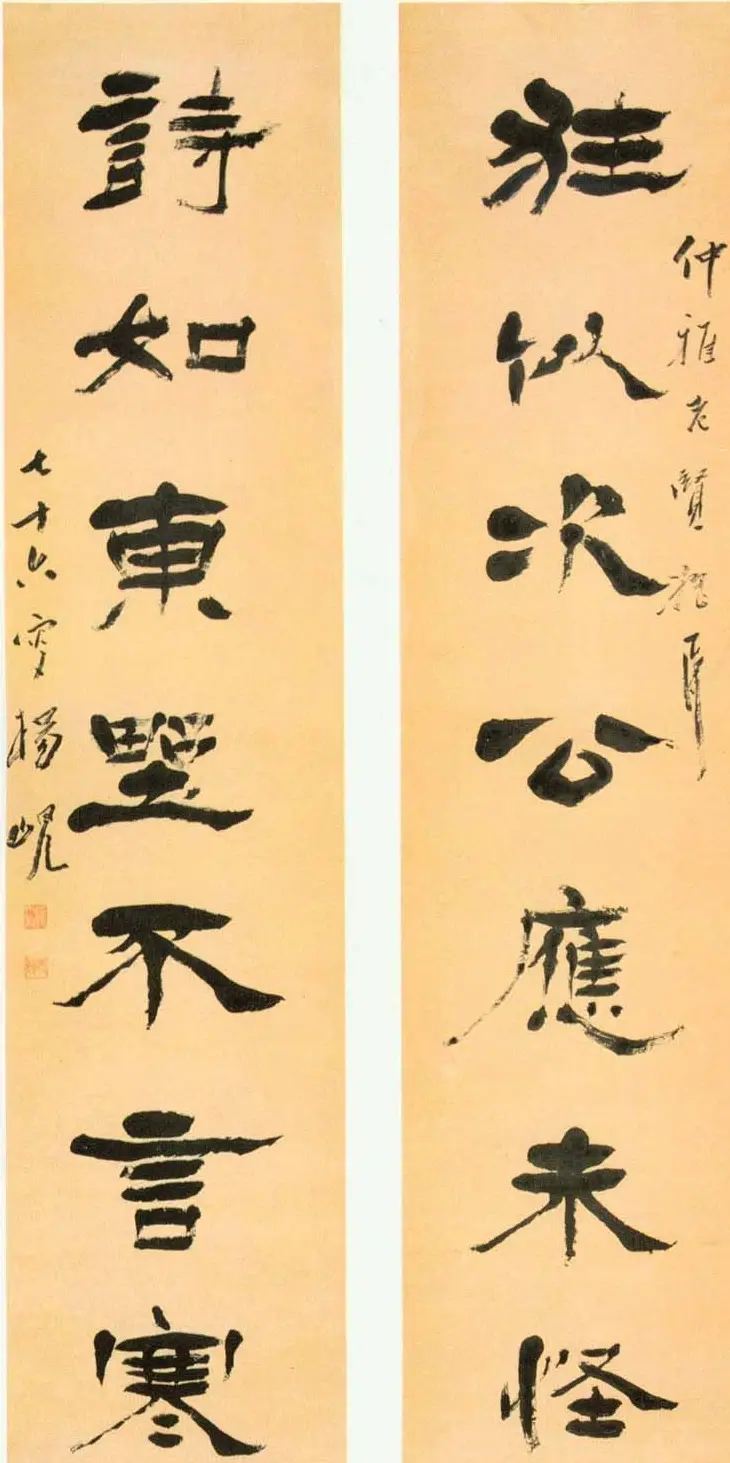 仲雅老賢屬
狂似次公應未怪
詩如東野不言寒
七十六叟楊峴